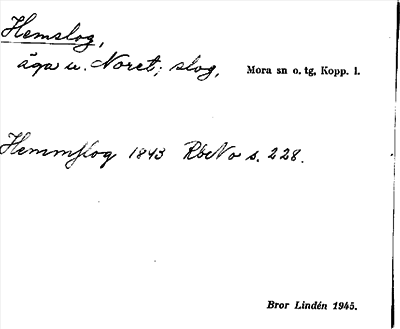 Hemslog,
äga u. Noret; slog, Mora sn o. tg, Kopp. l.
Hemmslog 1843 RbeNo s. 228.
Bror Lindén 1945.